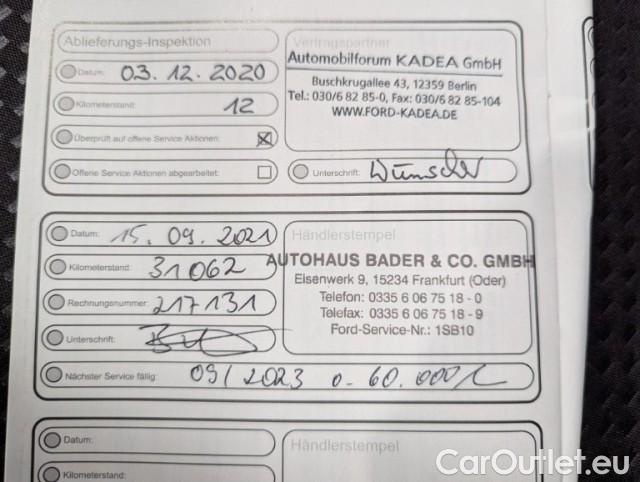 Ablieferungs-Inspektion
Datum: 03.12.2020
Kilometerstand: 12
Überprüft auf offene Service Aktionen:
Offene Service Aktionen abgearbeitet:
Vertragspartner
Automobilforum KADEA GmbH
Buschkrugallee 43, 12359 Berlin
Tel.: 030/6 82 85-0, Fax: 030/6 82 85-104
WWW.FORD-KADEA.DE
Unterschrift: Wünscher
Datum: 15.09.2021
Kilometerstand: 31062
Rechnungsnummer: 217131
Unterschrift:
Händlerstempel
AUTOHAUS BADER & CO. GMBH
Eisenwerk 9, 15234 Frankfurt (Oder)
Telefon: 0335 6 06 75 18 - 0
Telefax: 0335 6 06 75 18 - 9
Ford-Service-Nr.: 1SB10
Nächster Service fällig: 09/2023 o. 60.000
Datum:
Händlerstempel
Kilometerstand:
CarOutlet.eu